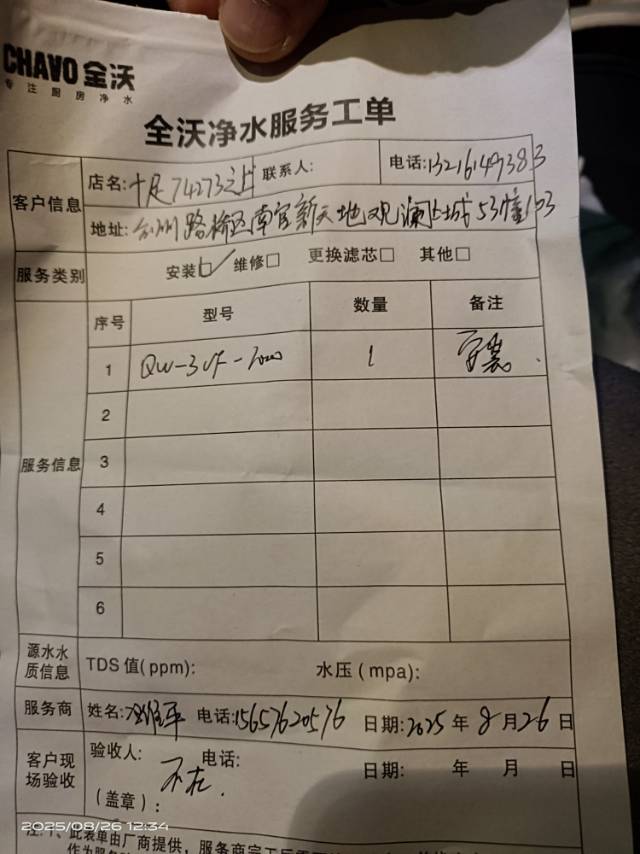 CHAVO 全沃
专注厨房净水
全沃净水服务工单
客户信息
店名: 十足74273之上 联系人: 电话:13216149383
地址: 台州路桥区南官新天地观澜古城53幢103
服务类别 安装☑ 维修□ 更换滤芯□ 其他□
服务信息
序号 型号 数量 备注
1 QW-3UF-1000 1 安装.
2
3
4
5
6
源水水质信息 TDS值(ppm): 水压(mpa):
服务商 姓名: 电话:15657620576 日期:2025年8月26日
客户现场验收
验收人: 不在. 电话: 日期: 年 月 日
(盖章):
2025/08/26 12:34
注:1、此表单由厂商提供,